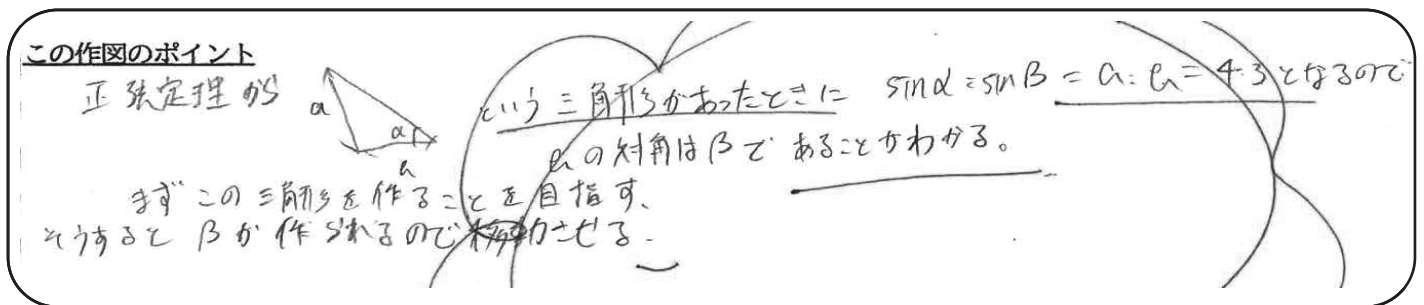 この作図のポイント
正弦定理から a α という三角形があったときに sinα:sinβ = a:b = 4:3となるので
bの対角はβであることがわかる。
まずこの三角形を作ることを目指す、
そうするとβが作られるので移動させる。